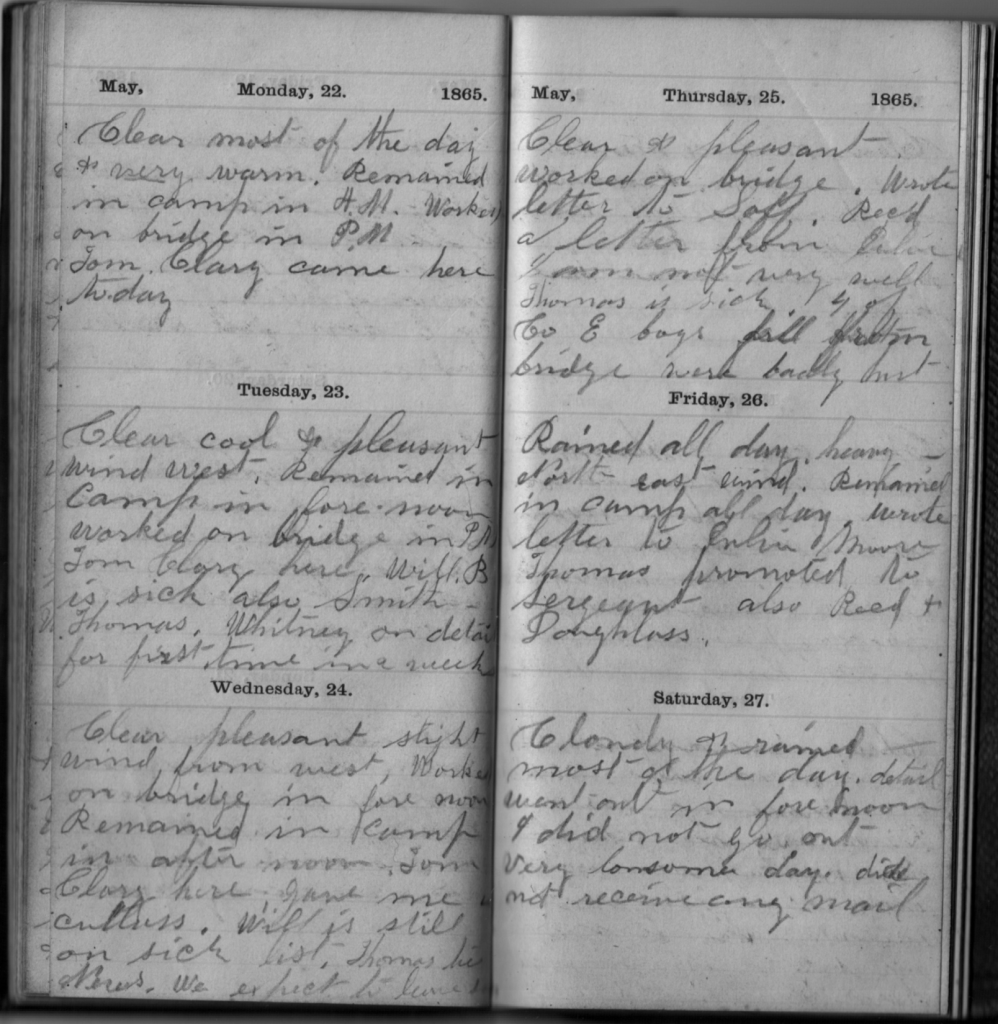 May, Monday, 22. 1865.
Clear most of the day
& very warm. Remained
in camp in A.M. Worked
on bridge in P.M
Tom. Clary came here
to day
Tuesday, 23.
Clear cool & pleasant
wind west. Remained in
Camp in fore-noon
worked on bridge in P.M
Tom Clary here. Will. B
is sick also Smith -
Thomas, Whitney on detail
for first time in a week
Wednesday, 24.
Clear pleasant slight
wind from west, Worked
on bridge in fore noon
Remained in Camp
in after noon. Tom
Clary here gave me a
cutlass. Will is still
on sick list, Thomas
News. We expect to leave
May, Thursday, 25. 1865.
Clear & pleasant.
worked on bridge. Wrote
letter to Soff. Rec'd
a letter from
I am not very well
Thomas is sick 4 of
Co E boys fell from
bridge were badly hurt
Friday, 26.
Rained all day, heavy -
North east wind. Remained
in camp all day, wrote
letter to Julia Moore
Thomas promoted to
Sergeant also Reed +
Doughlass.
Saturday, 27.
Cloudy & rained
most of the day. detail
went out in fore noon
I did not go out
Very lonsome day. did
not receive any mail